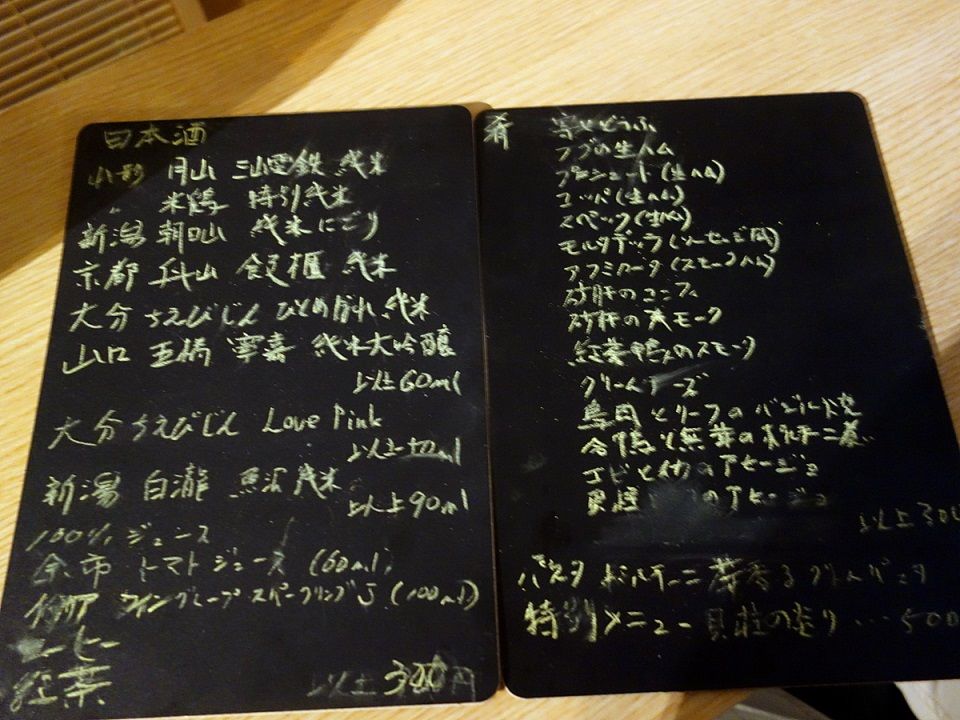 日本酒
山形 月山 純米
〃 米鶴 特別純米
新潟 朝日山 純米にごり
京都 丹山 飯櫃 純米
大分 ちえびじん ひとめぼれ 純米
山口 五橋 寧喜 純米大吟醸
以上60ml
大分 ちえびじん Love Pink
以上ml
新潟 白瀧 魚沼 純米
以上90ml
100% ジュース
余市 トマトジュース (60ml)
ワイングレープスパークリングJ (100ml)
コーヒー
紅茶
以上 300円
肴 寄せどうふ
フグの生ハム
プロシュート(生ハム)
コッパ(生ハム)
スペック(生ハム)
モルタデッラ(ソーセージ風)
アフミカータ(スモークハム)
砂肝のコンフィ
砂肝のスモーク
紅茶鴨のスモーク
クリームチーズ
鳥肉とリーフのバジル焼
合鴨と無花の煮
エビとイカのアヒージョ
のアヒージョ
以上300
パスタ ポルチーニ茸香るクリームパスタ
特別メニュー 貝柱の塗り…500